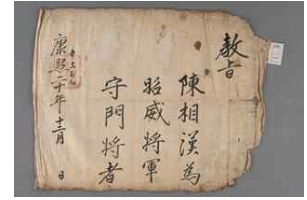 敎旨
陳相漢為
昭威將軍
守門將者
康熙二十年十二月 日